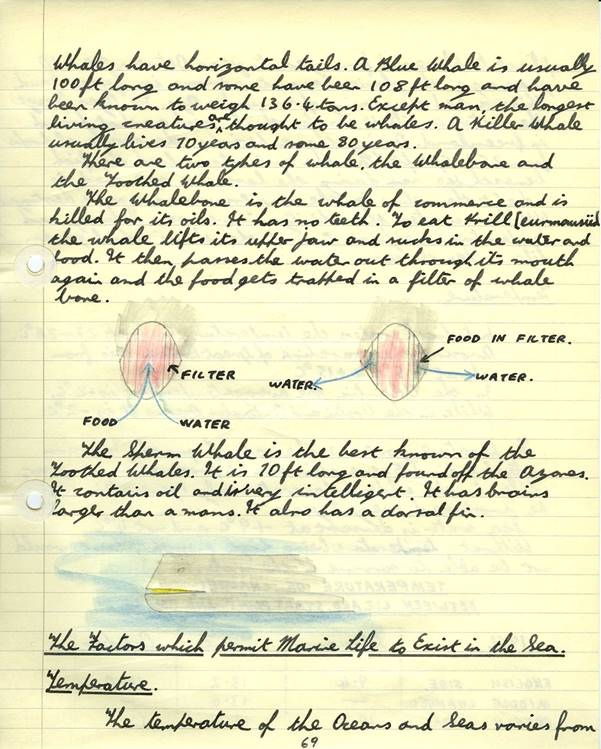 Whales have horizontal tails. A Blue Whale is usually
100ft long and some have been 108ft long and have
been known to weigh 136.4 tons. Except man, the longest
living creatures are thought to be whales. A Killer Whale
usually lives 70 years and some 80 years.
There are two types of whale, the Whalebone and
the Toothed Whale.
The Whalebone is the whale of commerce and is
killed for its oils. It has no teeth. To eat Krill
the whale lifts its upper jaw and sucks in the water and
food. It then passes the water out through its mouth
again and the food gets trapped in a filter of whale
bone.
FOOD IN FILTER.
FILTER
WATER.
WATER.
FOOD
WATER
The Sperm Whale is the best known of the
Toothed Whales. It is 70ft long and found off the Azores.
It contains oil and is very intelligent. It has brains
larger than a mans. It also has a dorsal fin.
The Factors which permit Marine Life to Exist in the Sea.
Temperature.
The temperature of the Oceans and Seas varies from
69